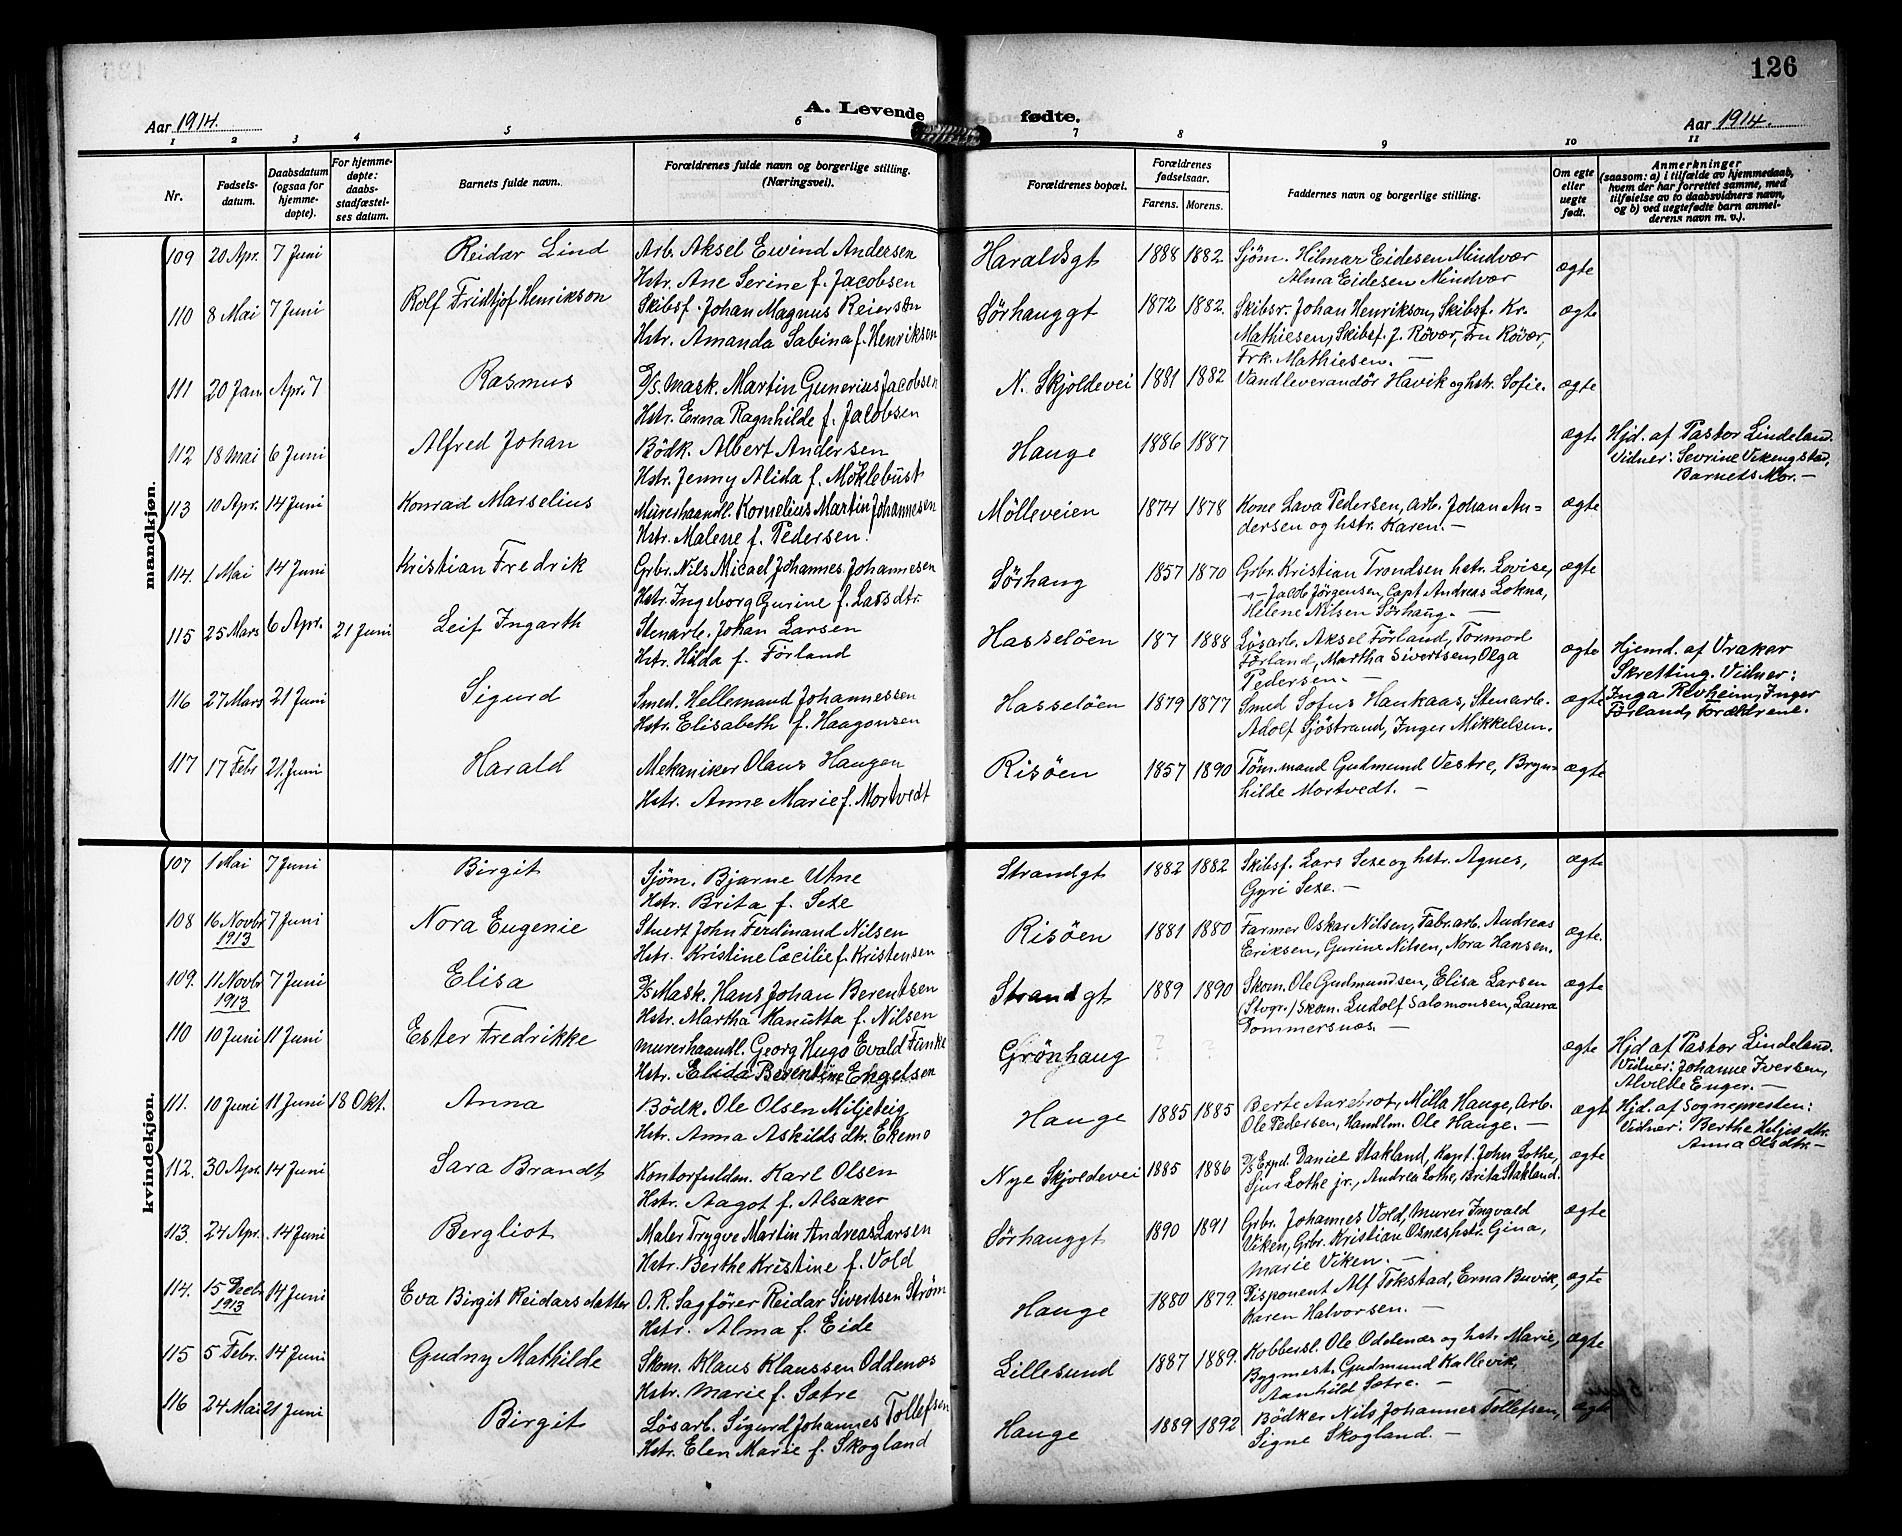 126
A. Levende fødte.
Aar 1914.
Aar 1914.
1 2 3 4 5 6 7 8 9 10 11
Nr.
Fødsels-
datum.
Daabsdatum
(ogsaa for
hjemme-
døpte).
For hjemme-
døpte:
daabs-
stadfæstel-
ses datum.
Barnets fulde navn.
Forældrenes fulde navn og borgerlige stilling.
(Næringsvei).
Forældrenes bopæl.
Forældrenes
fødselsaar.
Farens. Morens.
Faddernes navn og borgerlige stilling.
Om egte
eller
uegte
født.
Anmerkninger
(saasom: a) i tilfælde av hjemmedaab,
hvem der har forrettet samme, med
tilføielse av to daabsvidners navn,
og b) ved uegtefødte barn anmel-
derens navn m. v.).
mandkjøn.
109 20 Apr. 7 Juni Reidar Lind Arb. Aksel Eivind Andersen Haraldsgt 1888 1882 Sjøm. Hilmar Eidesen Mindvær ægte
Hstr. Ane Serine f. Jacobsen Alma Eidesen Mindvær
110 8 Mai 7 Juni Rolf Fridtjof Henrikson Skibsf. Johan Magnus Reiersen Sørhauggt 1872 1882. Skibsr. Johan Henrikson, Skibsf. Kr. ægte
Hstr. Amanda Sabina f. Henriksen Mathiesen, Skibsf. J. Røvær, Fru Røvær,
Frk. Mathiesen. —
111 20 Jan. Apr. 7 Rasmus D/S Mask. Martin Gunerius Jacobsen N. Skjoldevei 1881 1882 Vandleverandør Havik og hstr. Sofie. ægte
Hstr. Erna Ragnhilde f. Jacobsen
112 18 Mai 6 Juni Alfred Johan Bødk. Albert Andersen Hauge 1886 1887 ægte Hjd. af Pastor Lindeland.
Hstr. Jenny Alida f. Møklebust Vidner: Sevrine Vikingstad,
Barnets Mor. —
113 10 Apr. 14 Juni Konrad Marselius Murerhaandl. Kornelius Martin Johannesen Mølleveien 1874 1878 Kone Lava Pedersen, Arb. Johan An= ægte
Hstr. Malene f. Pedersen. dersen og hstr. Karen. —
114. 1 Mai 14 Juni Kristian Fredrik Grbr. Nils Micael Johannes Johannesen Sørhaug 1857 1870 Grbr. Kristian Trondsen hstr. Lovise, ægte
Hstr. Ingeborg Gurine f. Larsdtr. Jacob Jørgensen, Capt Andreas Lokna,
Helene Nilsen Sørhaug. —
115 25 Mars 6 Apr. 21 Juni Leif Ingarth Stenarb. Johan Larsen Hasseløen 187 1888 Løsarb. Aksel Førland, Tormod ægte Hjemd. af Vraker
Hstr. Hilda f. Førland Førland, Martha Sivertsen, Olga Skretting. Vidner:
Pedersen. — Inga Revheim, Inger
Førland, Forældrene.
116 27 Mars 21 Juni Sigurd Smed. Hellemand Johannessen Hasseløen 1879 1877 Smed Sofus Hankaas, Stenarb. ægte
Hstr. Elisabeth f. Haagonsen Adolf Sjøstrand, Inger Mikkelsen.
117 17 Febr 21. Juni Harald Mekaniker Olaus Haugen Risøen 1857 1890 Tøm.mand Gudmund Vestre, Bryn= ægte
Hstr. Anne Marie f. Mortvedt hilde Mortvedt. —
kvindekjøn.
107 1 Mai 7 Juni Birgit Sjøm. Bjarne Utne Strandgt 1882 1882 Skibsf. Lars Sexe og hstr. Agnes, ægte
Hstr. Brita f. Sexe Gyri Sexe. —
108 16 Novbr 1913 7 Juni Nora Eugenie Stuert John Ferdinand Nilsen Risøen 1881 1880 Farmer Oskar Nilsen, Fabr.arb. Andreas ægte.
Hstr. Kristine Cæcilie f. Kristensen Eriksen, Gurine Nilsen, Nora Hansen.
109. 11 Novbr 1913 7 Juni Elisa D/S Mask. Hans Johan Berentsen Strandgt 1889 1890 Skom. Ole Gudmundsen, Elisa Larsen ægte
Hstr. Martha Hanutta f. Nilsen (Stvgr.) Skom. Ludolf Salomonsen, Laura
Dommersnæs. —
110 10 Juni 11 Juni Ester Fredrikke Murerhaandl. Georg Hugo Evald Funke Grønhaug ? ? ægte Hjd af Pastor Lindeland.
Hstr. Elida Berentine Engelsen Vidner: Johanne Iversen,
Alvilde Enger. —
111. 10 Juni 11 Juni 18 Okt. Anna Bødk. Ole Olsen Miljeteig Hauge 1885 1885 Berte Aarebrot, Milla Hauge, Arb. ægt Hjd. af Sognepresten:
Hstr. Anna Askildsdtr. Ekemo Ole Pedersen, Handlm. Ole Hauge. — Vidner: Berthe Heljesdtr.
Anna Olsdtr —
112. 30 Apr. 14 Juni Sara Brandt Kontorfuldm. Karl Olsen Nye Skjoldevei 1885 1886 D/S Exped. Daniel Stakland, Kapt. John Lothe, ægte
Hstr. Aagot f. Alsaker Sjur Lothe jr., Andrea Lothe, Brita Stakland.
113. 24 Apr. 14 Juni Bergliot Maler Trygve Martin Andreas Larsen Sørhauggt 1890 1891 Grbr. Johannes Vold, Murer Ingvald ægte
Hstr. Berthe Kristine f. Vold Viken, Grbr. Kristian Osnes, hstr. Gina,
Marie Viken. —
114. 15 1913 14 Juni Eva Birgit Reidarsdatter O.R. Sagfører Reidar Sivertsen Strøm Hauge 1880 1879. Disponent Alf Tokstad, Erna Buvik, ægte
Hstr. Alma f. Eide Karen Halvorsen. —
115 5 Febr. 14 Juni Gudny Mathilde Skom. Klaus Klaussen Oddenæs Lillesund 1887 1889. Kobbersl. Ole Oddenæs og hstr. Marie, ægte
Hstr. Marie f. Sætre Bygmest. Gudmund Kallevik,
Aanhild Sætre. —
116 24 Mai 21 Juni Birgit Løsarb. Sigurd Johannes Tollefsen Hauge 1889 1892 Bødker Nils Johannes Tollefsen, ægte
Hstr. Elen Marie f. Skogland Signe Skogland. —